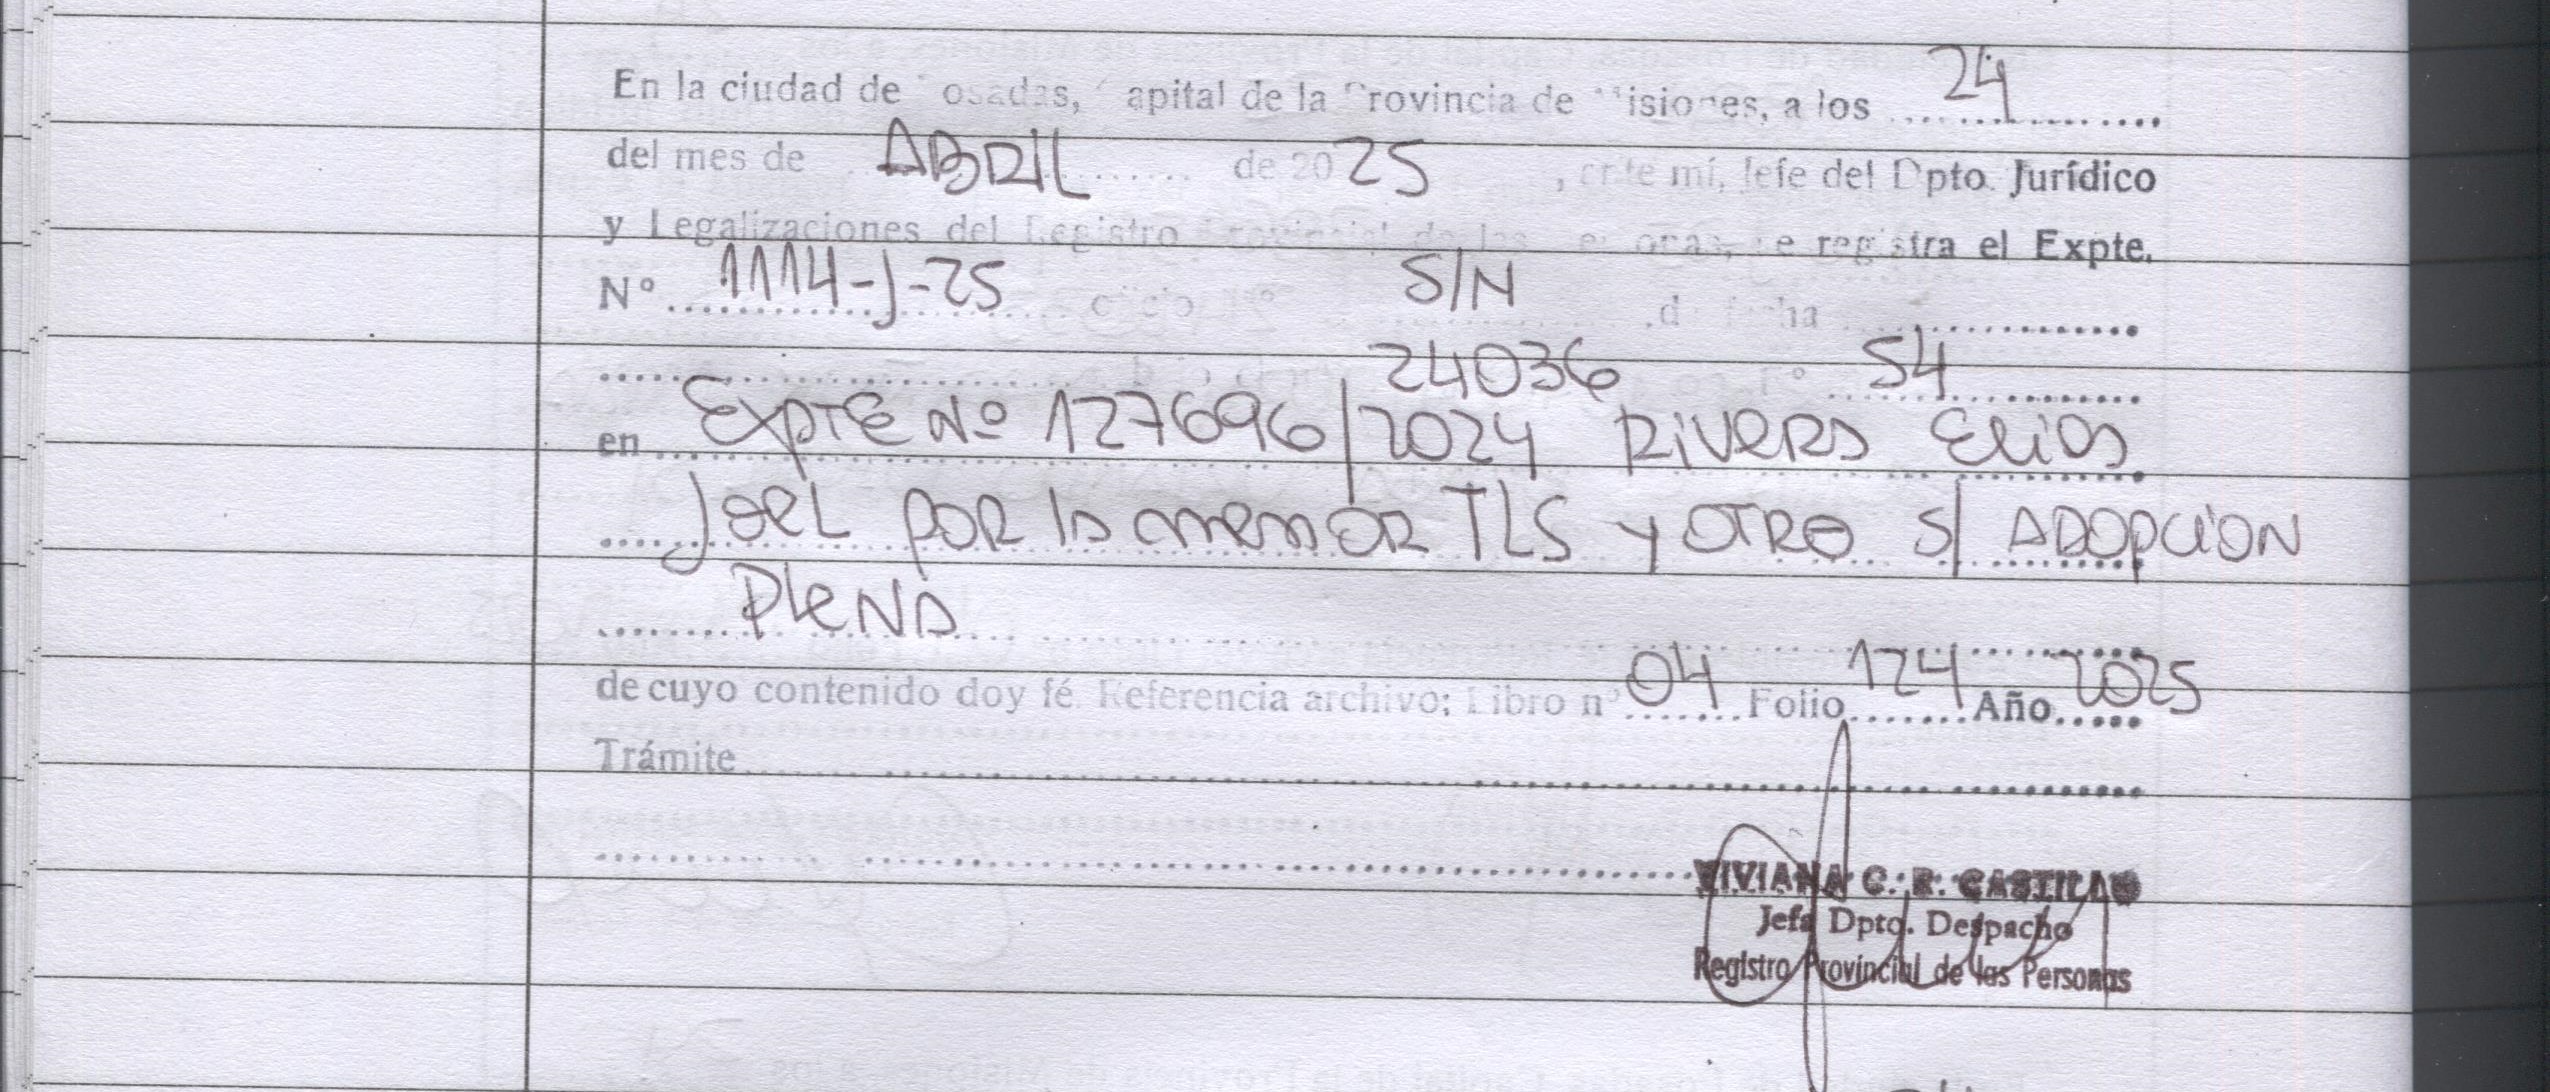 En la ciudad de osadas, apital de la rovincia de isiones, a los 24
del mes de ABRIL de 2025, ante mí, Jefe del Dpto. Jurídico
y Legalizaciones del Registro Provincial de las e onas, e registra el Expte.
Nº 1114-J-25 oficio Nº S/N de fecha
24036 54
en EXPTE Nº 127696/2024 RIVERO ELIAS
JOEL POR la menOR TLS y OTRO S/ ADOPCION
PLENA
de cuyo contenido doy fé. Referencia archivo: Libro nº 04 Folio 124 Año 2025
Trámite
VIVIANA C. R. CASTILLO
Jefa Dpto. Despacho
Registro Provincial de las Personas